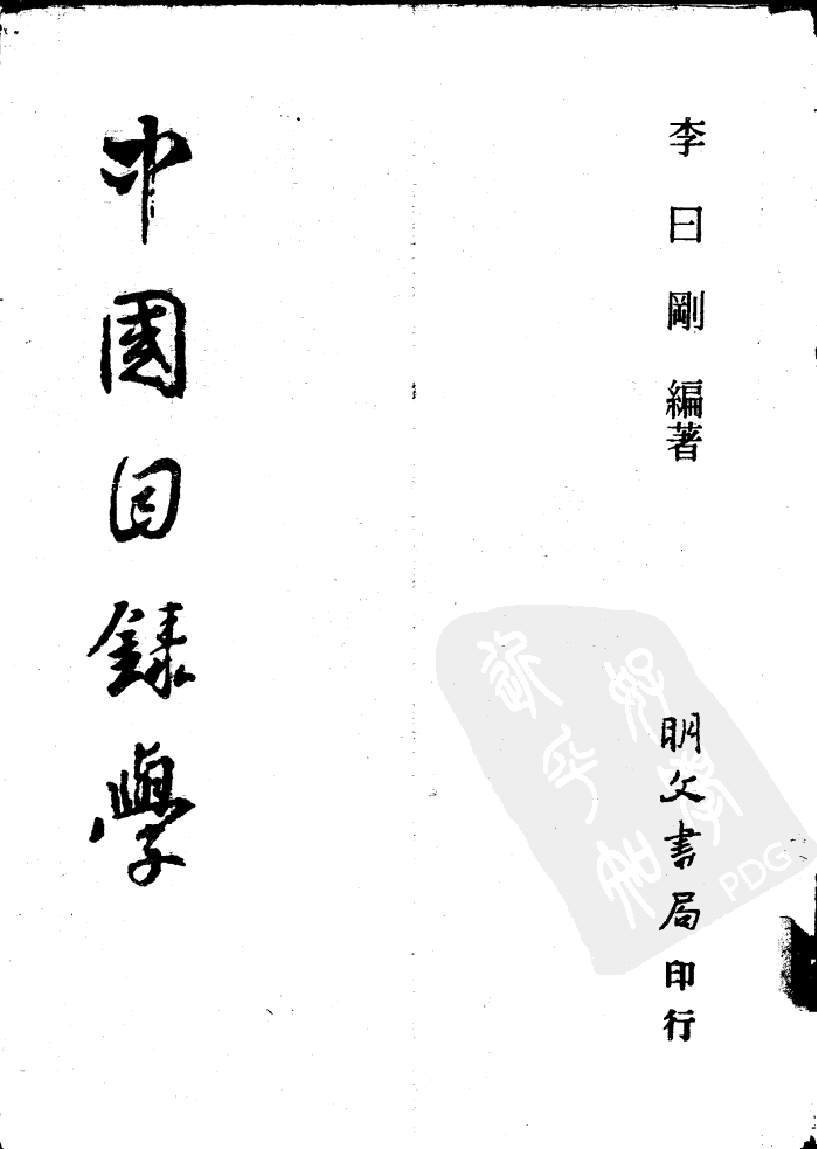 李曰剛編著
明文書局印行
中國目錄學
PDG